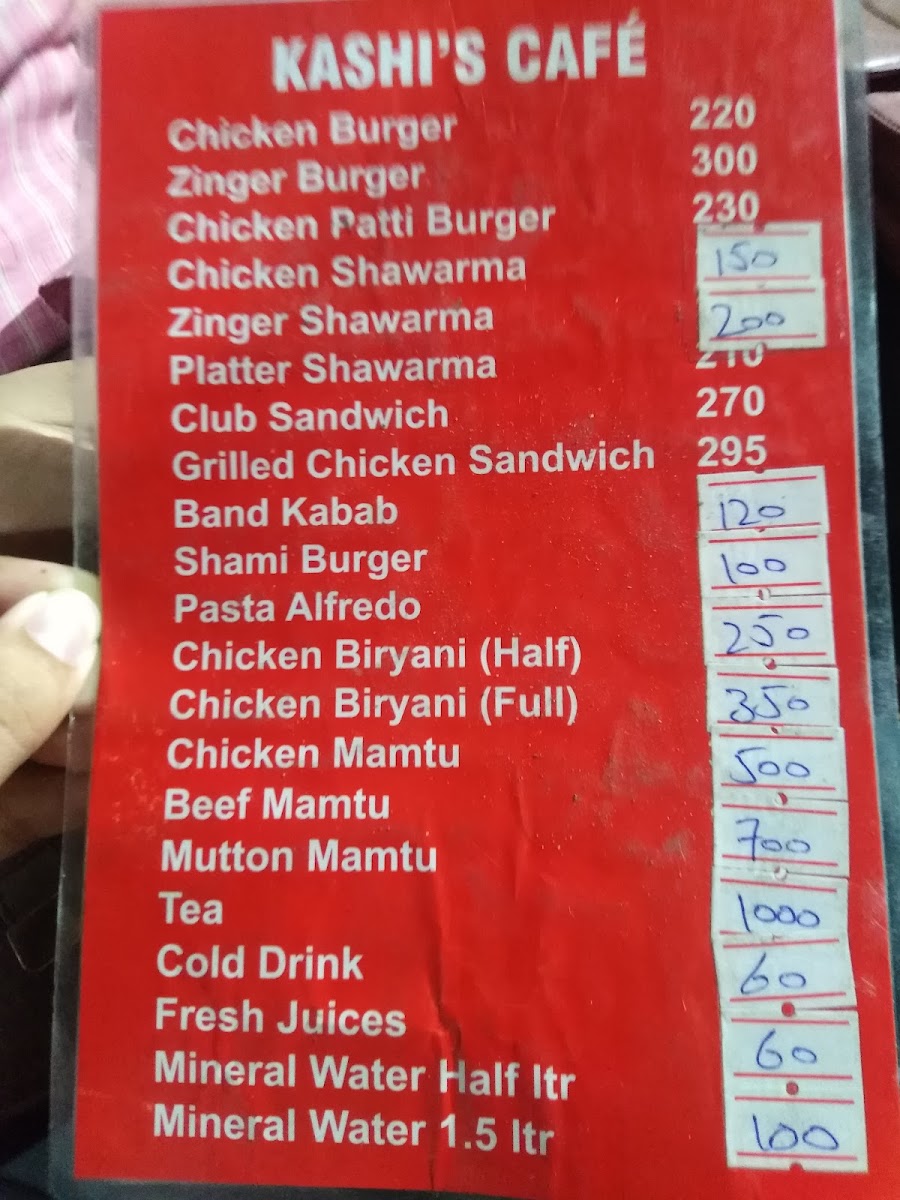 KASHI'S CAFÉ
Chicken Burger 220
Zinger Burger 300
Chicken Patti Burger 230
Chicken Shawarma 150
Zinger Shawarma 200
Platter Shawarma 210
Club Sandwich 270
Grilled Chicken Sandwich 295
Band Kabab 120
Shami Burger 100
Pasta Alfredo
Chicken Biryani (Half) 250
Chicken Biryani (Full) 350
Chicken Mamtu 500
Beef Mamtu
Mutton Mamtu 700
Tea 1000
Cold Drink 60
Fresh Juices
Mineral Water Half ltr 60
Mineral Water 1.5 ltr 100